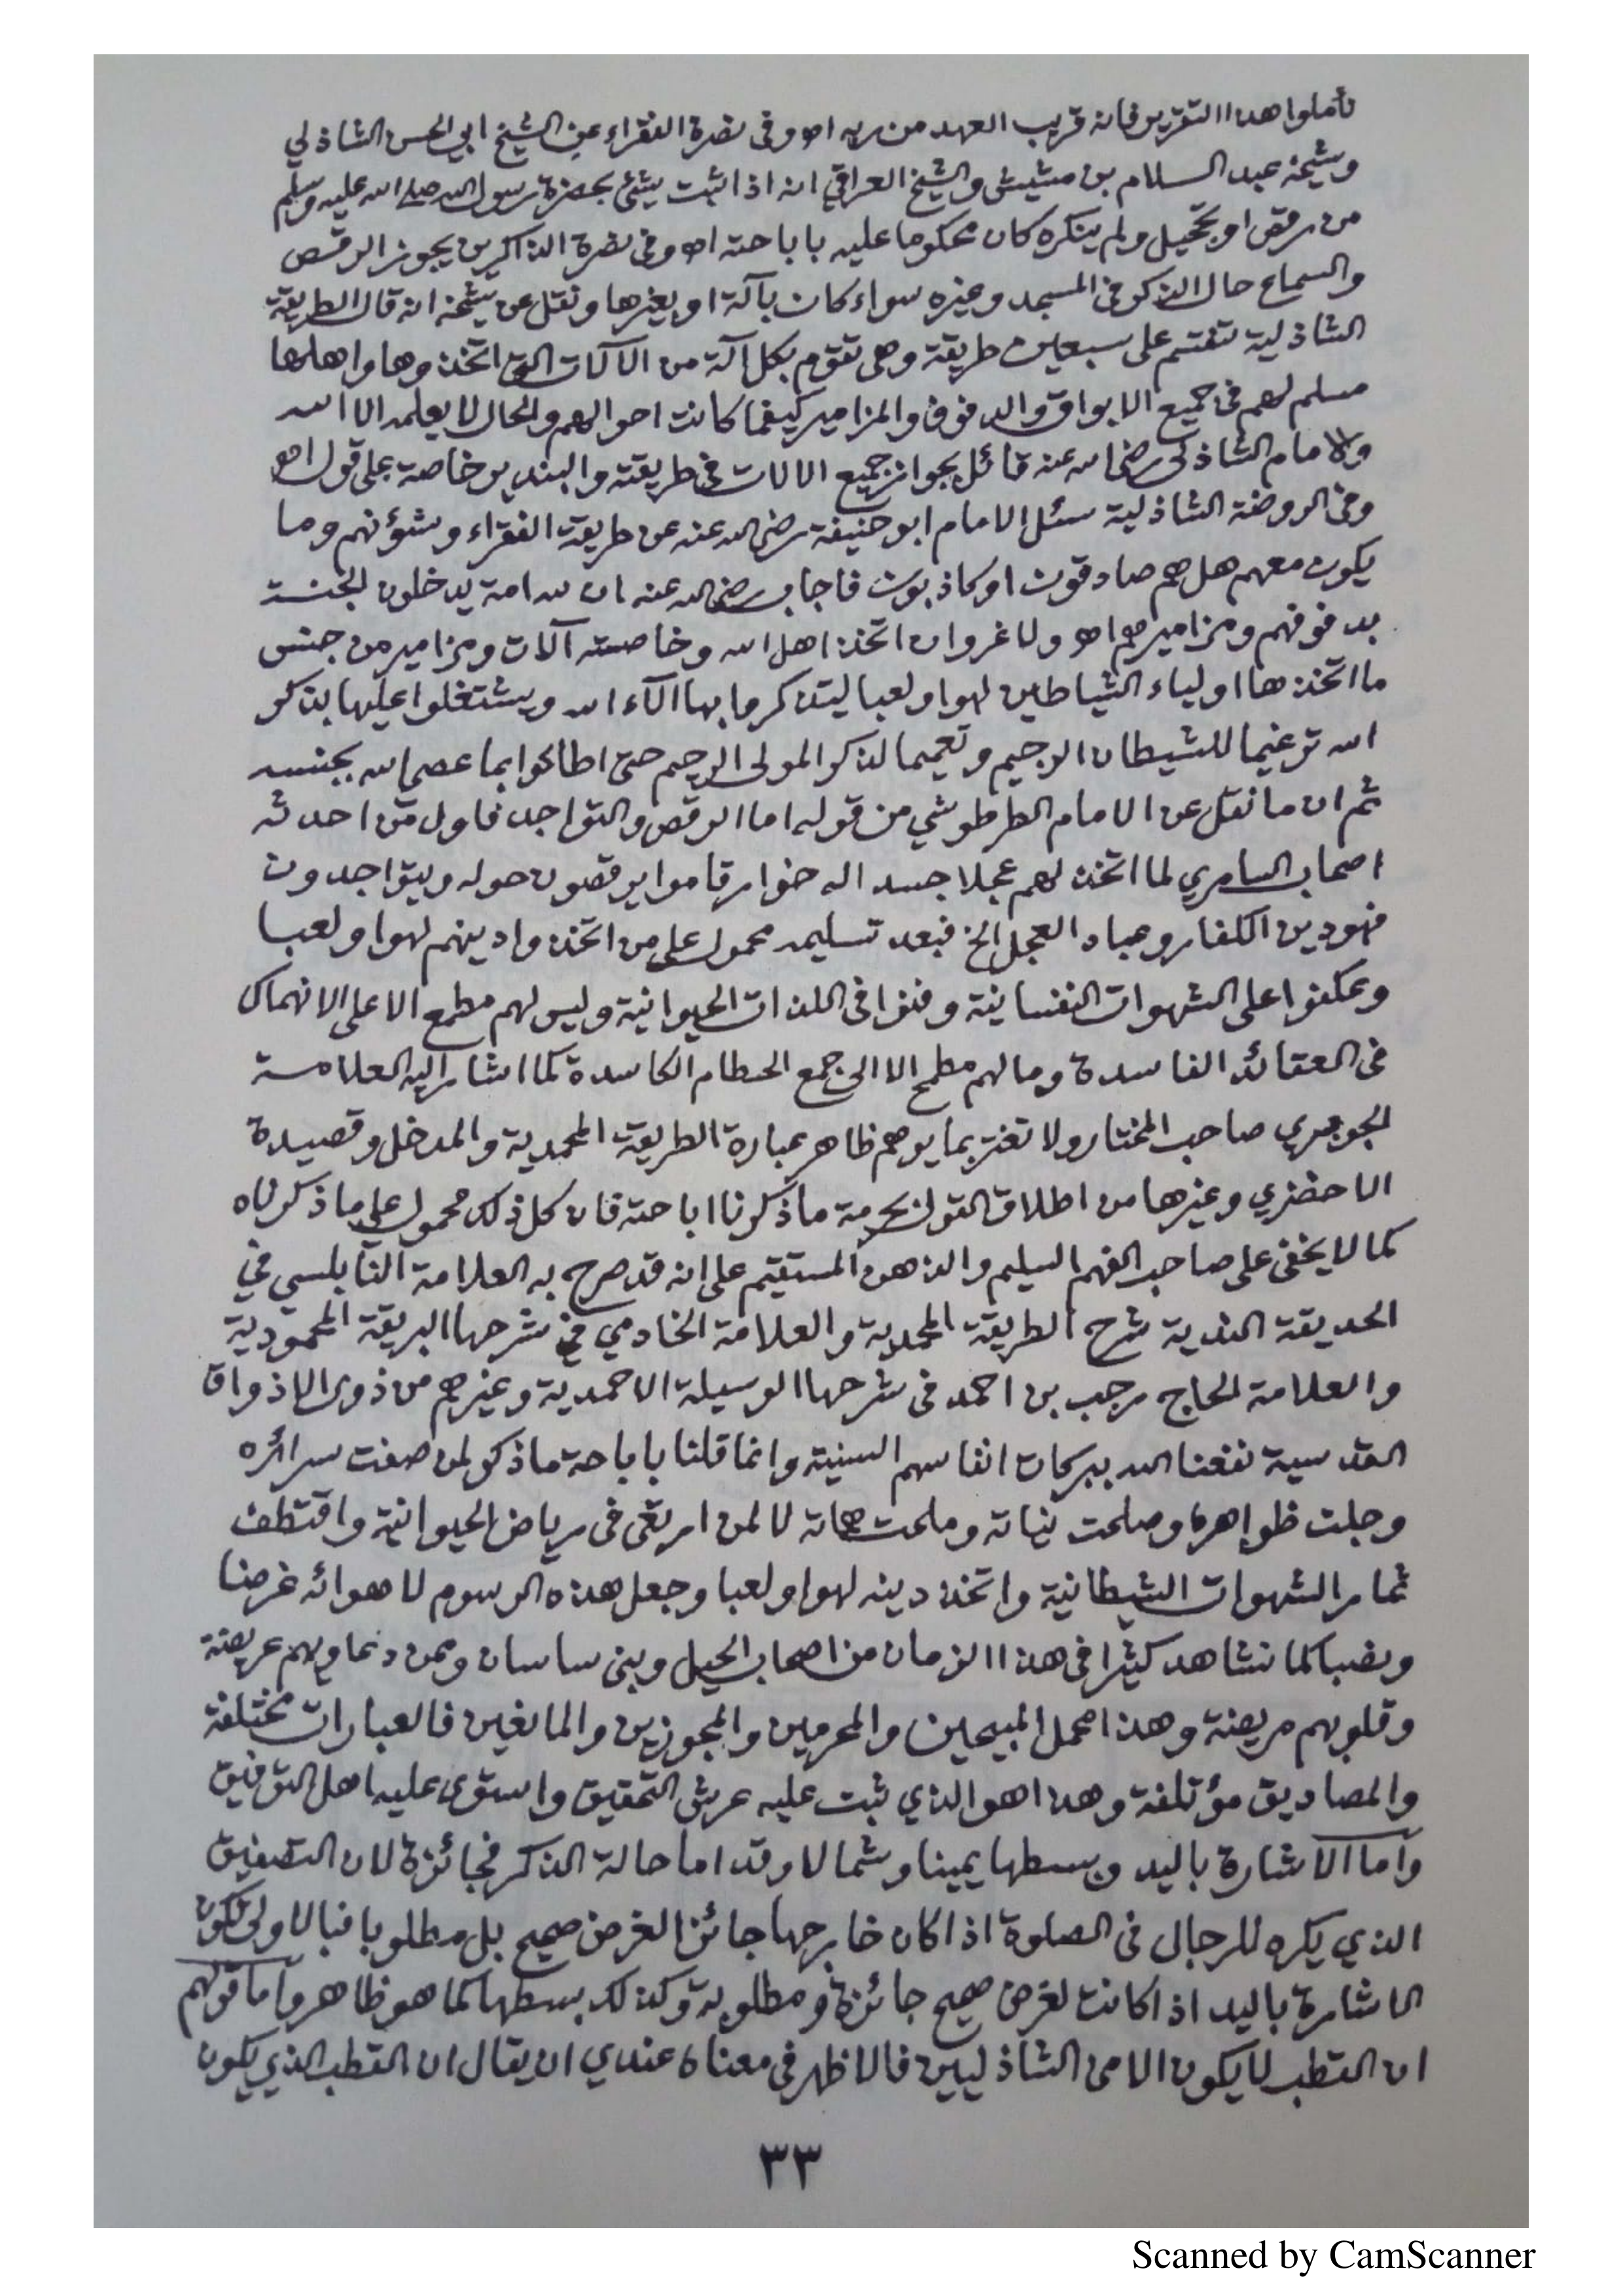 تأملوا هذا التقرير فانه قريب العهد من ربه اهـ وفى نصرة الفقراء عن الشيخ ابي الحسن الشاذلي
وشيخه عبد السلام بن مشيش والشيخ العراقي انه اذا ثبت شئ بحضرة رسول الله صلى الله عليه وسلم
من رقص او تحجيل ولم ينكره كان محكوما عليه باباحته اهـ وفى نصرة الذاكرين يجوز الرقص
والسماع حال الذكر فى المسجد وغيره سواء كان بآلة او بغيرها ونقل عن شيخه انه قال الطريقة
الشاذلية تنقسم على سبعين طريقة وهى تقوم بكل آلة من الآلات التى اتخذوها واهلها
مسلم لهم فى جميع الابواق والدفوف والمزامير كيفما كانت احوالهم والحال لا يعلمه الا الله
والامام الشاذلى رضى الله عنه قائل بجواز جميع الالات فى طريقته والبندير خاصة على قول اهـ
وفى الروضة الشاذلية سئل الامام ابو حنيفة رضى الله عنه عن طريقة الفقراء وشؤنهم وما
يكون معهم هل هم صادقون او كاذبون فاجاب رضى الله عنه ان لله امة يدخلون الجنة
بدفوفهم ومزاميرهم اهـ ولا غرو ان اتخذ اهل الله وخاصته آلات ومزامير من جنس
ما اتخذها اولياء الشياطين لهوا ولعبا ليتذكروا بها الآء الله ويشتغلوا عليها بذكر
الله ترغيما للشيطان الرجيم وتعميما لذكر المولى الرحيم حتى اطاعوا بما عصى الله بجنسه
ثم ان ما نقل عن الامام الطرطوشي من قوله اما الرقص والتواجد فاول من احدثه
اصحاب السامري لما اتخذ لهم عجلا جسدا له خوار قاموا يرقصون حوله ويتواجدون
فهو دين الكفار وعباد العجل الخ فبعد تسليمه محمول على من اتخذوا دينهم لهوا ولعبا
وعكفوا على الشهوات النفسانية وفنوا فى اللذات الحيوانية وليس لهم مطمع الا على الانهماك
فى العقائد الفاسدة وما لهم مطمح الا الى جمع الحطام الكاسدة كما اشار اليه العلامة
الجوهري صاحب المختار ولا تغتر بما يوهم ظاهر عبارة الطريقة المحمدية والمدخل وقصيدة
الاخضري وغيرها من اطلاق القول بحرمة ما ذكرنا اباحته فان كل ذلك محمول على ما ذكرناه
كما لا يخفى على صاحب الفهم السليم والذهن المستقيم على انه قد صرح به العلامة النابلسي في
الحديقة الندية شرح الطريقة المحمدية والعلامة الخادمي في شرحها البريقة المحمودية
والعلامة الحاج رجب بن احمد فى شرحها الوسيلة الاحمدية وغيرهم من ذوى الاذواق
القدسية نفعنا الله ببركات انفاسهم السنية وانما قلنا باباحة ما ذكر لمن صفت سرائره
وجلت ظواهره وصلحت نياته وملحت هماته لا لمن ارتقى فى رياض الحيوانية واقتطف
ثمار الشهوات الشيطانية واتخذ دينه لهوا ولعبا وجعل هذه الرسوم لاهوائه غرضا
ونصبا كما نشاهد كثيرا فى هذا الزمان من اصحاب الحيل وبنى ساسان وممن دعاويهم عريضة
وقلوبهم مريضة وهذا محمل المبيحين والمحرمين والمجوزين والمانعين فالعبارات مختلفة
والمصاديق مؤتلفة وهذا هو الذي ثبت عليه عرش التحقيق واستوى عليه اهل التوفيق
وأما الاشارة باليد وبسطها يمينا وشمالا وقداما حالة الذكر فجائزة لان التصفيق
الذي يكره للرجال فى الصلوة اذا كان خارجها جائز لغرض صحيح بل مطلوبا فبالاولى تكون
الاشارة باليد اذا كانت لغرض صحيح جائزة ومطلوبة وكذلك بسطها كما هو ظاهر وأما قولهم
ان القطب لا يكون الا من الشاذليين فالاظهر فى معناه عندي ان يقال ان القطب الذي يكون
٣٣
Scanned by CamScanner